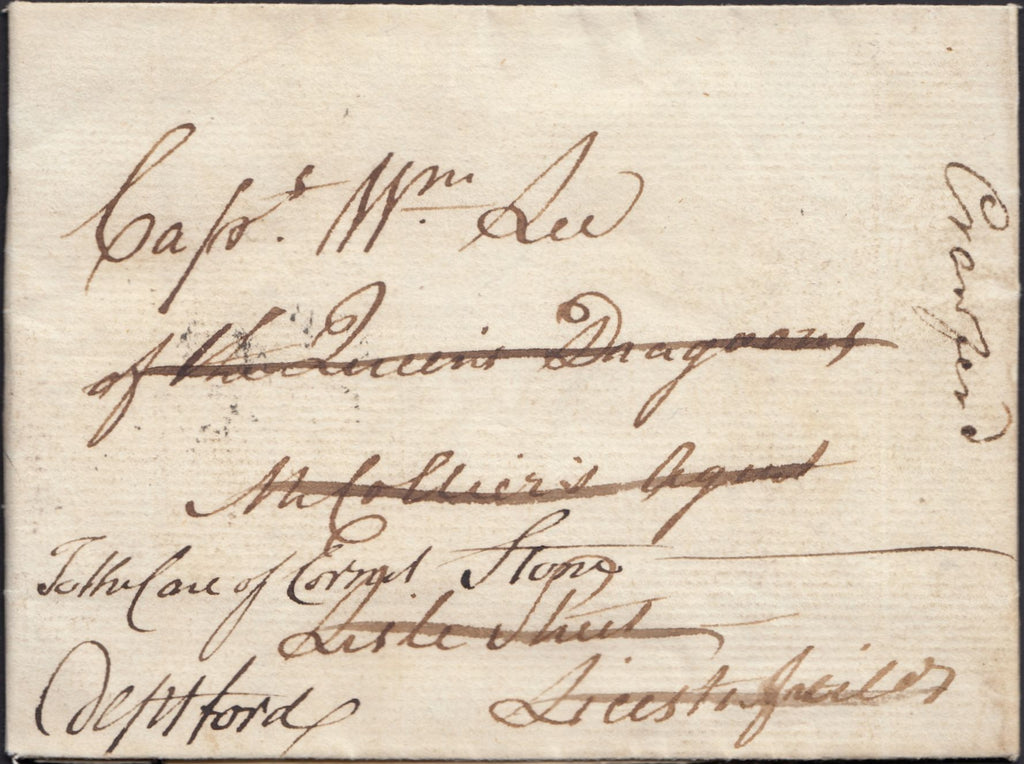 Capt. Wm. Lee
of the Queen's Dragoons
At Collier's Agent
To the Care of Cornet Stone
Lisle Street
Deptford
Leicester fields